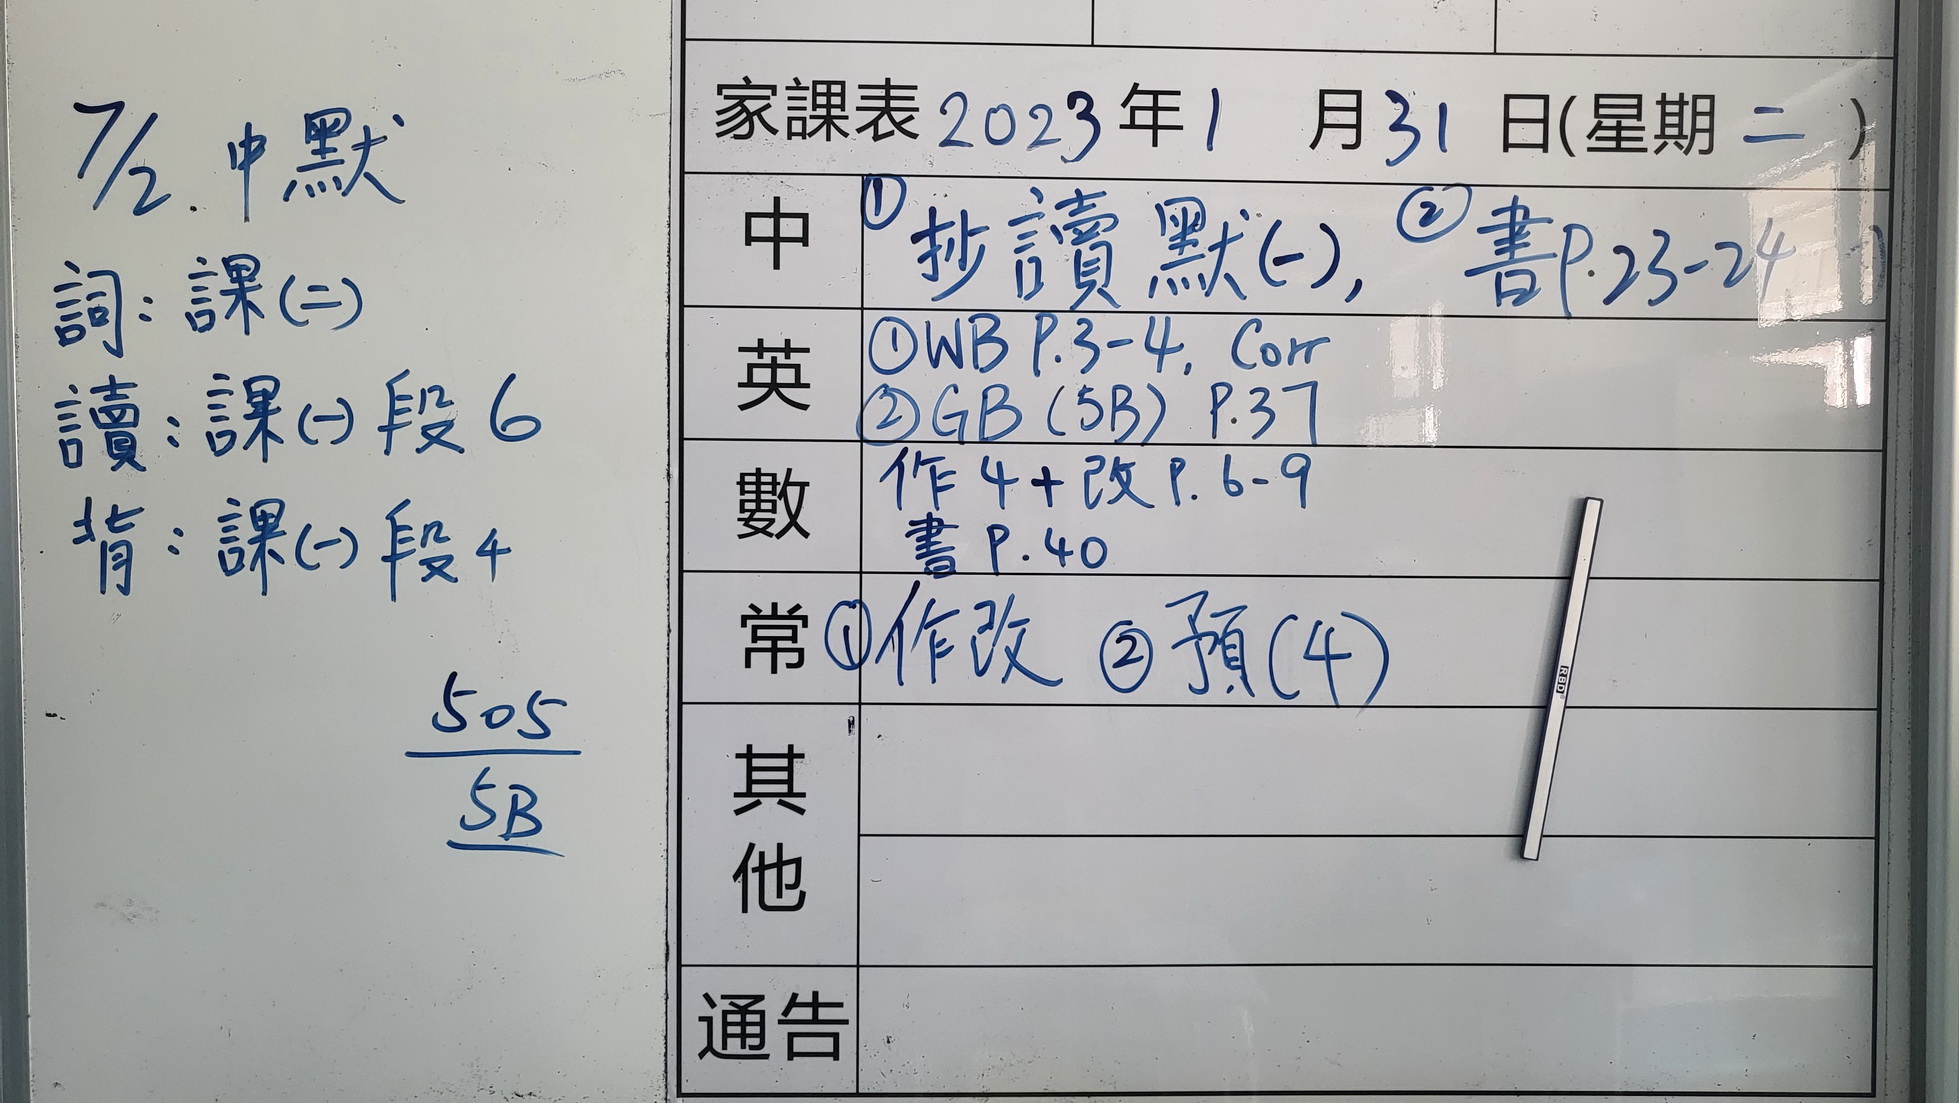 7/2. 中默
詞：課(二)
讀：課(一)段6
背：課(一)段4
505
5B
家課表 2023年1月31日(星期二)
中 ①抄讀默(一), ②書P.23-24
英 ①WB P.3-4, Corr
②GB (5B) P.37
數 作4+改P.6-9
書P.40
常 ①作改 ②預(4)
其他
通告
RBD